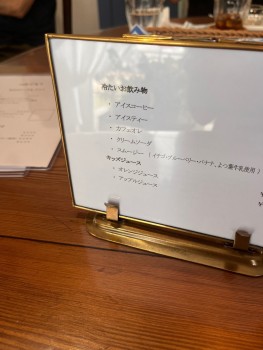 冷たいお飲み物
・ アイスコーヒー
・ アイスティー
・ カフェオレ
・ クリームソーダ
・ スムージー （イチゴ・ブルーベリー・バナナ、よつ葉牛乳使用）
キッズジュース
・ オレンジジュース
・ アップルジュース